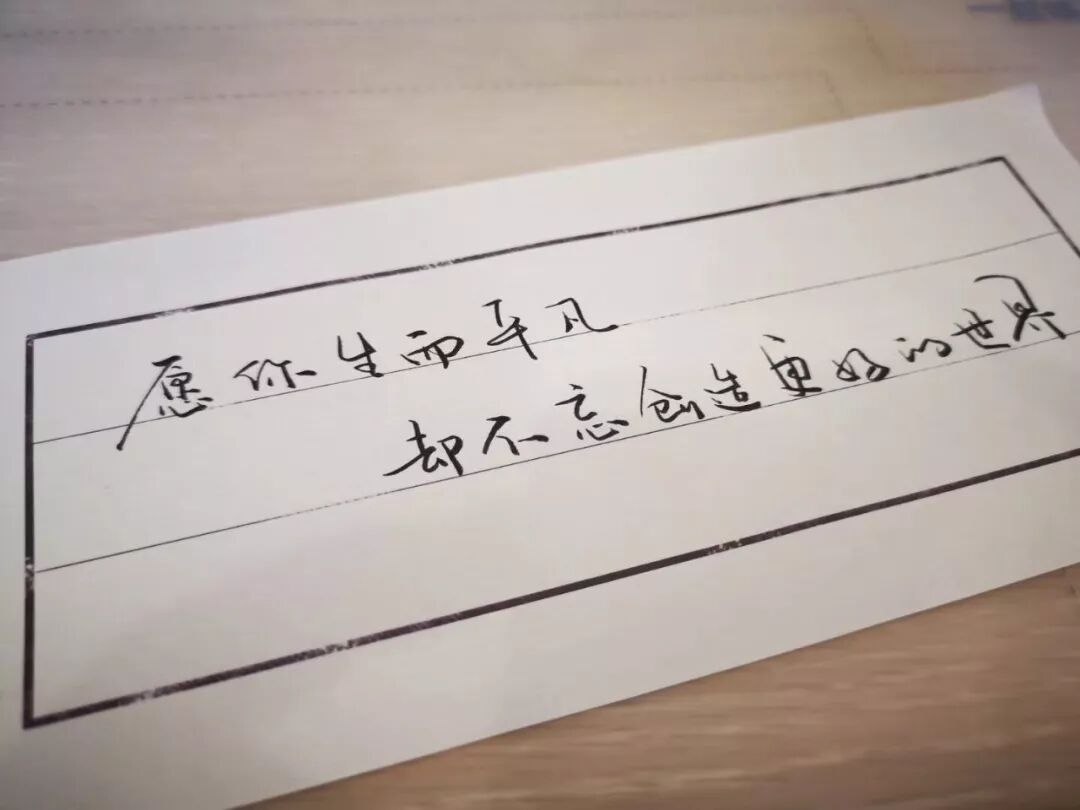 愿你生而平凡
却不忘创造更好的世界